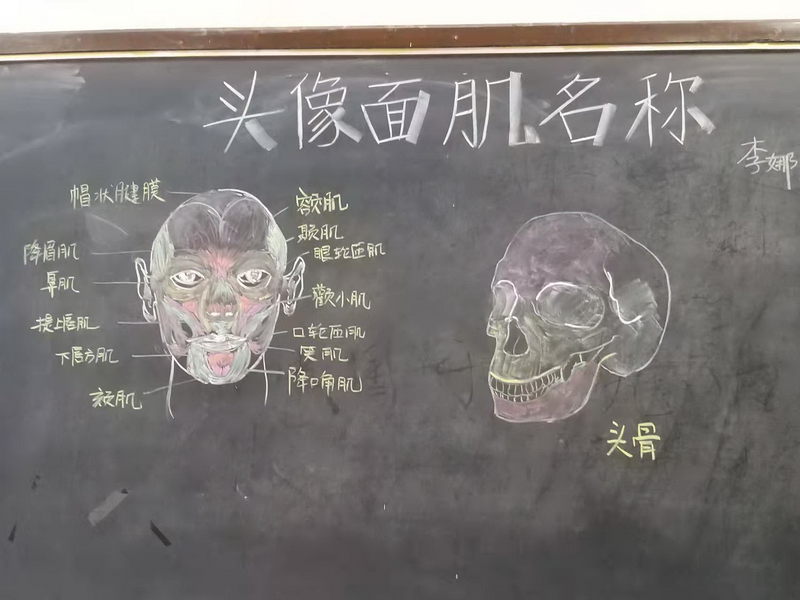 头像面肌名称
李娜
帽状腱膜
降眉肌
鼻肌
提上唇肌
下唇方肌
颏肌
额肌
颞肌
眼轮匝肌
颧小肌
口轮匝肌
笑肌
降口角肌
头骨